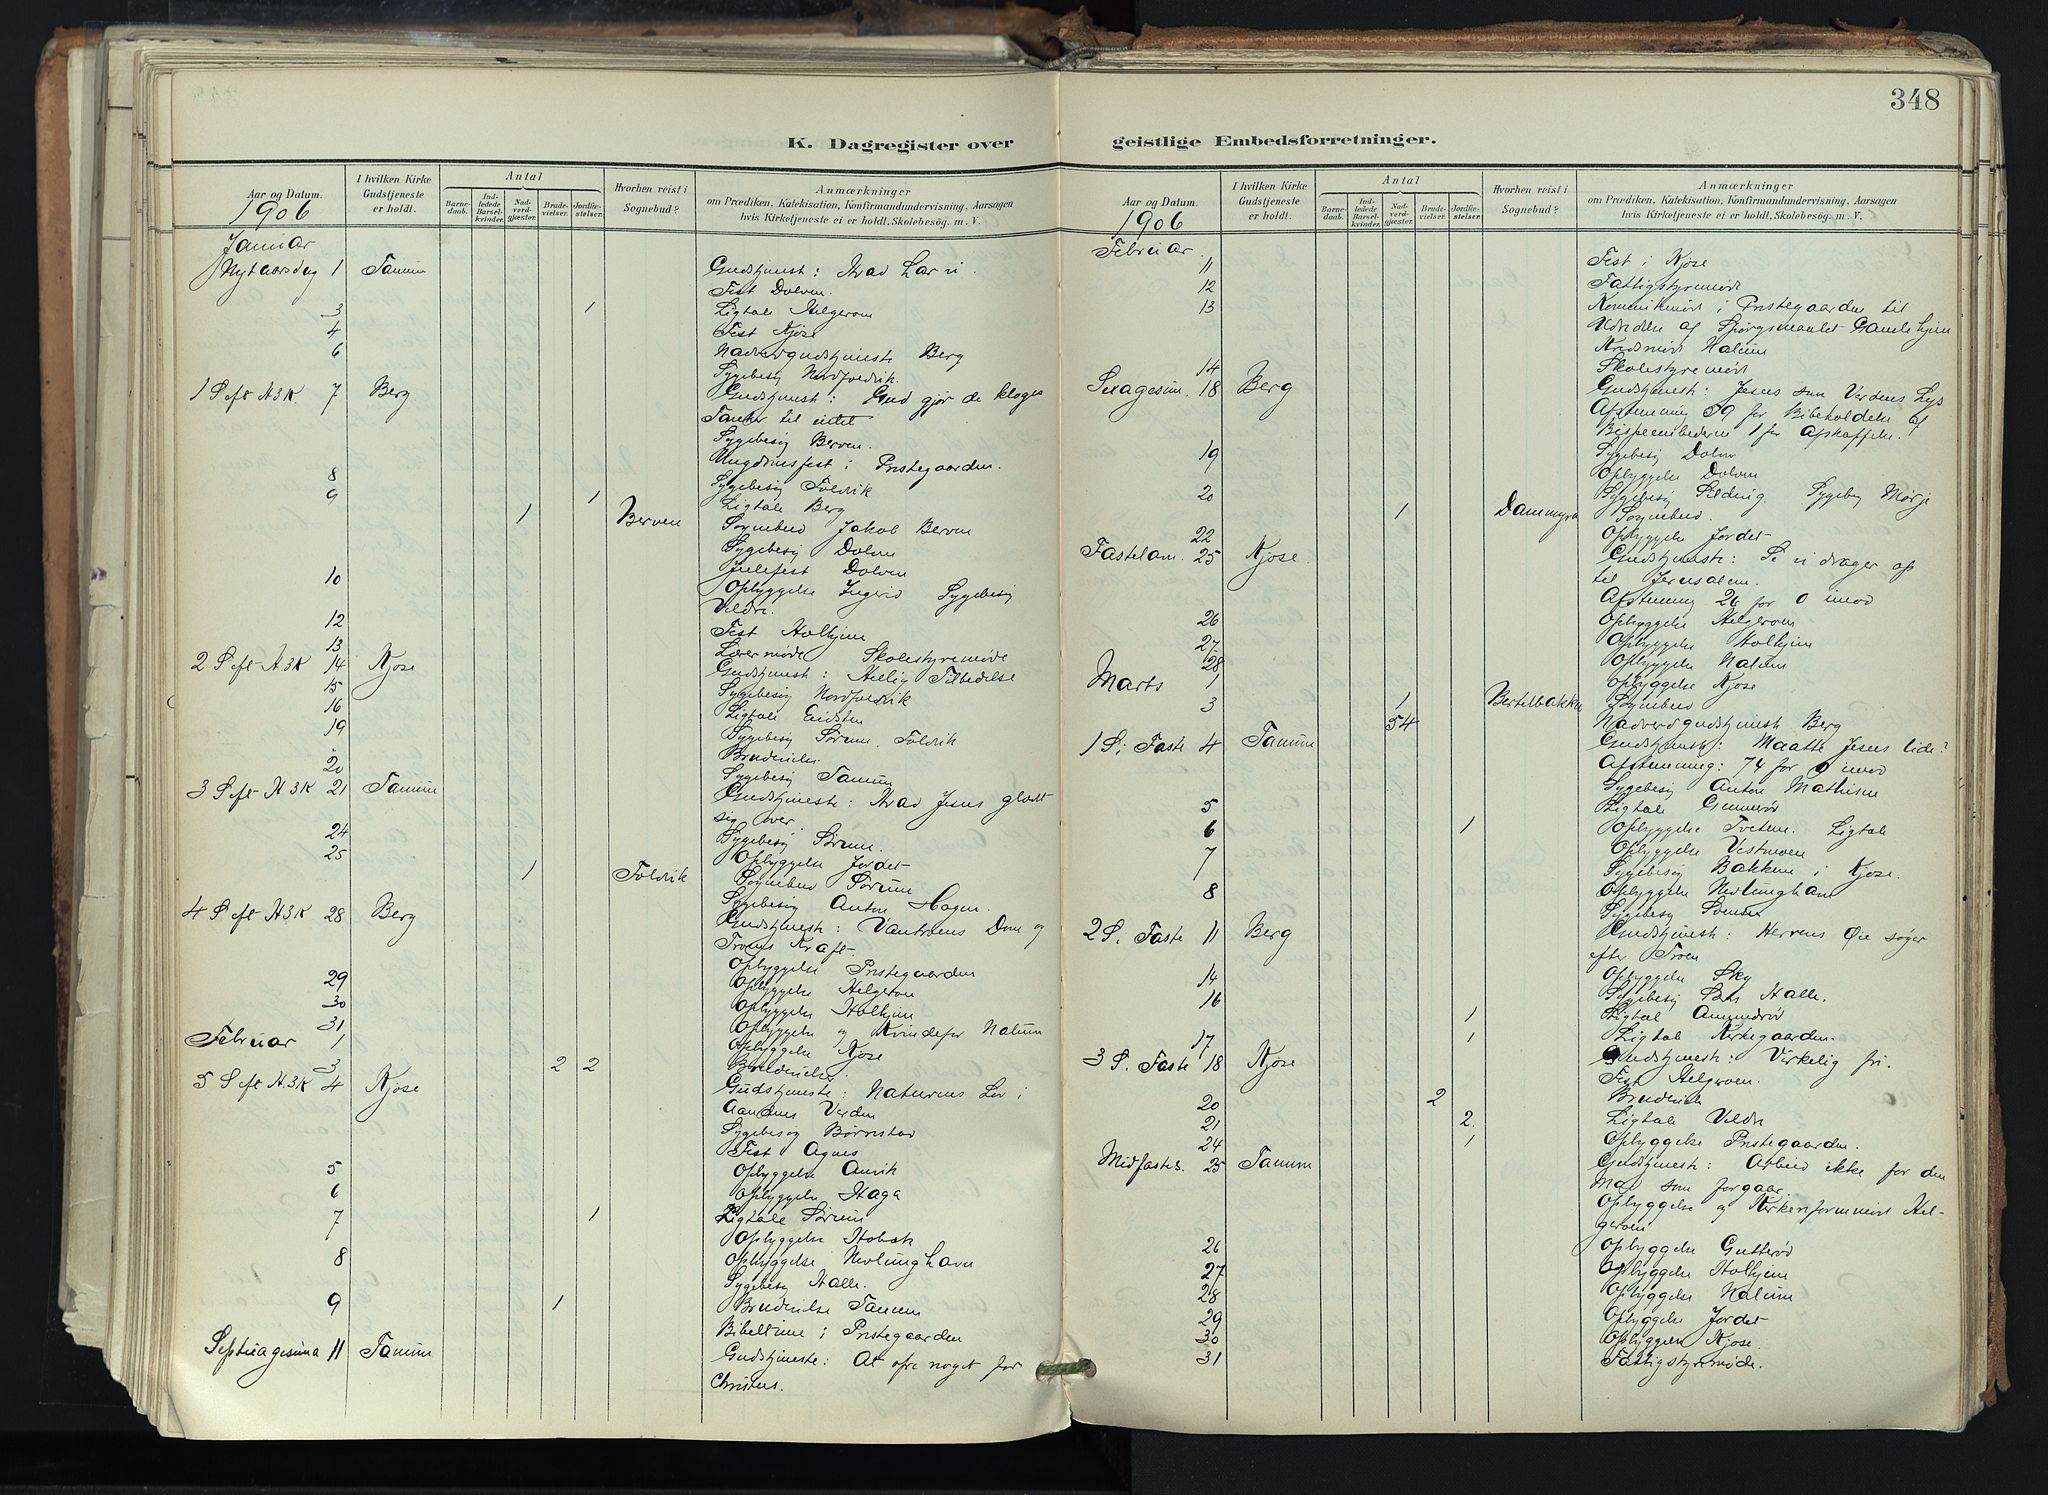 348
K. Dagregister over
Aar og Datum.
I hvilken Kirke
Gudstjeneste
er holdt.
Antal
Barne-
daab.
Ind-
ledede
Barsel-
kvinder.
Nad-
verd-
gjester.
Brude-
vielser.
Jordfæ-
stelser.
Hvorhen reist i
Sognebud?
Anmærkninger
om Prædiken, Katekisation, Konfirmandundervisning, Aarsagen
hvis Kirketjeneste ei er holdt, Skolebesøg. m. V.
1906
Januar
Nytaarsdag 1 Tanum Gudstjenest: Hvad Lar vi.
Fest Dolven.
3 1 Ligtale Helgerom
4 Fest Kjose
6 Nadverdgudstjeneste Berg
Sygebesøg Nordfoldvik.
1 S eft H3K. 7 Berg Gudstjenest: Gud gjør de kloges
Tanker til intet
Sygebesøg Berven.
Ungdomsfest i Prestegaarden.
8 Sygebesøg Foldvik
9 1 Ligtale Berg
1 Berven Sognebud Jakob Berven
Sygebesøg Dolven
10 Julefest Dolven
Opbyggelse Ingerid Sygebesøg
Veldre.
12 Fest Holhjem
13 Lærermøde Skolestyremøde
2 S eft H3K 14 Kjose Gudstjenest: Hellig Tilbedelse
15 Sygebesøg Nordfoldvik
16 Ligtale Eidsten
19 Sygebesøg Sørum. Foldvik
Brudevielse.
20 Sygebesøg Tanum
3 S eft H3K 21 Tanum Gudstjeneste: Hvad Jesus glædet
sig over.
24 Sygebesøg Sørum.
25 Opbyggelse Jordet
1 Foldvik Sognebud Sørum
Sygebesøg Anton Hagen.
4 S eft H3K 28 Berg Gudstjeneste: Vantroens Dom og
Troens Kraft.
29 Opbyggelse Prestegaarden
30 Opbyggelse Helgeroen
31 Opbyggelse Holhjem
Opbyggelse og Kvindefor Nalum
Februar 1 Opbyggelse Kjose
3 2 2 Brudevielse.
5 S eft H.3K 4 Kjose Gudstjeneste: Naturens Lov i
Aandens Verden
Sygebesøg Børnstad
Fest Agnes
5 Opbyggelse Anvik
6 Opbyggelse Haga
7 1 Ligtale Sørum
Opbyggelse Hobæk
8 Opbyggelse Nevlunghavn
Sygebesøg Halle.
9 1 Brudevielse Tanum
Bibeltime i Prestegaarden
Septuagesima 11 Tanum Gudstjeneste: At ofre noget for
Christus.
geistlige Embedsforretninger.
Aar og Datum.
I hvilken Kirke
Gudstjeneste
er holdt.
Antal
Barne-
daab.
Ind-
ledede
Barsel-
kvinder.
Nad-
verd-
gjester.
Brude-
vielser.
Jordfæ-
stelser.
Hvorhen reist i
Sognebud?
Anmærkninger
om Prædiken, Katekisation, Konfirmandundervisning, Aarsagen
hvis Kirketjeneste ei er holdt, Skolebesøg. m. V.
1906
Februar.
11 Fest i Kjose
12 Fattigstyremøde
13 Komitemøde i Prestegaarden til
Utredelse af Spørgsmaalet Gamlehjem
Kredsmøde Nalum
14 Skolestyremøde
Sexagesim. 18 Berg Gudstjenest: Jesus som Verdens Lys
Afstemning 59 for Bibeholdelse af
Bispeembederne 1 for Afskaffelse.
19 Sygebesøg Dolven
Opbyggelse Dolven
20 Sygebesøg Sygebes Mørje
1 Dammyra Sognebud.
22 Opbyggelse Jordet
Fastelavn. 25 Kjose. Gudstjeneste: Se vi drager op
til Jerusalem.
Afstemning 26 for 0 imod
26 Opbyggelse Helgeroen
27 Opbyggelse Holhjem
28 Opbyggelse Nalum
Marts 1 Opbyggelse Kjose
3 1 Bertelbakken Sognebud
54 Nadverdgudstjenest Berg
1 S i Faste 4 Tanum Gudstjeneste: Maatte Jesus lide?
Afstemning: 74 for 0 imod
Sygebesøg Anton Mathisen
5 Ligtale Gunnerød
6 1 Opbyggelse Tveten. Ligtale
7 Opbyggelse Vestnoen
Sygebesøg Bakkene i Kjose.
8 Opbyggelse Nevlunghavn
Sygebesøg
2 S. Faste 11 Berg Gudstjenest: Herrens Øie søger
efter Troen
14 Opbyggelse Sky
16 Sygebesøg Halle.
1 Ligtale Amundrød
17 1 Ligtale Kirkegaarden.
3 S. Faste 18 Kjose Gudstjeneste: Virkelig fri.
Fest Helgeroen.
20 2 Brudevielse
21 2. Ligtale Veldre
24 1 Opbyggelse Prestegaarden.
Midfastes. 25 Tanum Gudstjeneste: Arbeid ikke for den
Mad som forgaar.
Opbyggelse og Hel-
geroen
26 Opbyggelse Gutterød
27 Opbyggelse Holhjem
28 Opbyggelse Nalum
29 Opbyggelse Jordet
30 Opbyggelse Kjose.
31 Fattigstyremøde.